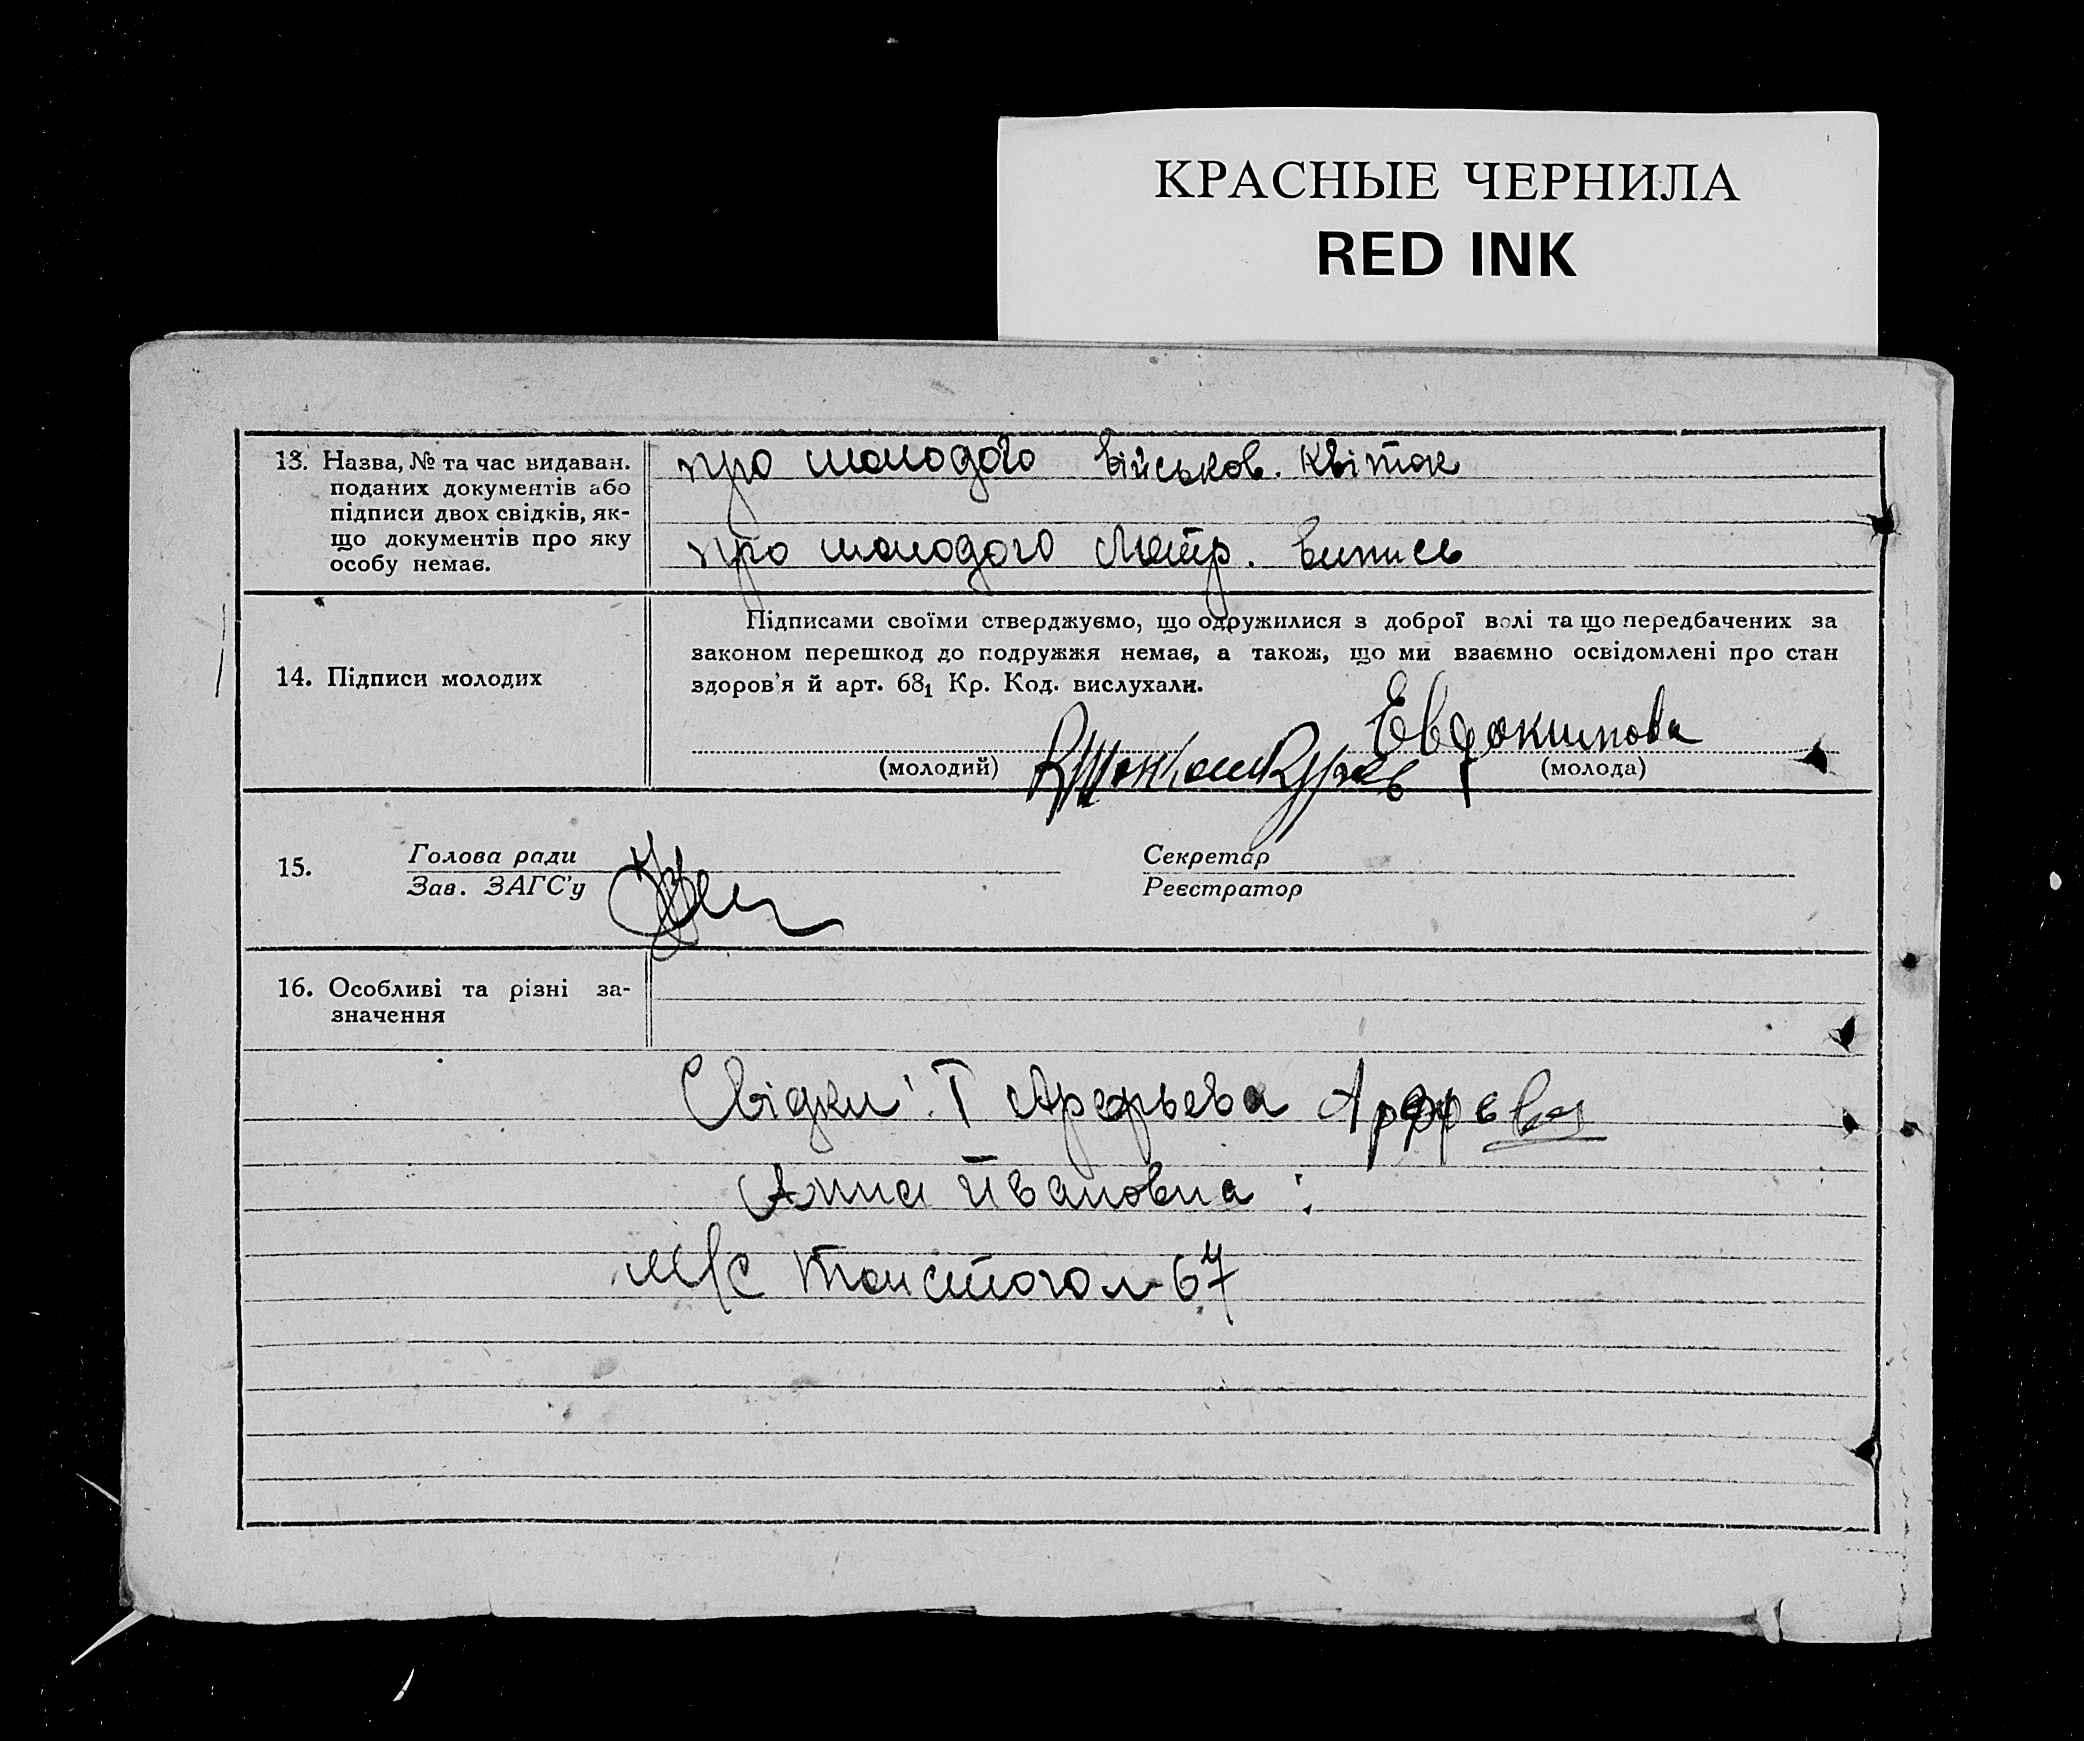 КРАСНЫЕ ЧЕРНИЛА
RED INK
13. Назва, № та час видаван. поданих документів або підписи двох свідків, як-
що документів про яку
особу немає.
про молодого військов. квіток
про молодого Метр. випись
14. Підписи молодих
Підписами своїми стверджуємо, що одружилися з доброї волі та що передбачених за
законом перешкод до подружжя немає, а також, що ми взаємно освідомлені про стан
здоров'я й арт. 68₁ Кр. Код. вислухали.
Евдокимова
(молодий)
(молода)
15.
Голова ради
Зав. ЗАГС'у
Секретар
Реєстратор
16. Особливі та різні за-
значення
Свідки: Арефьева
Анна Ивановна